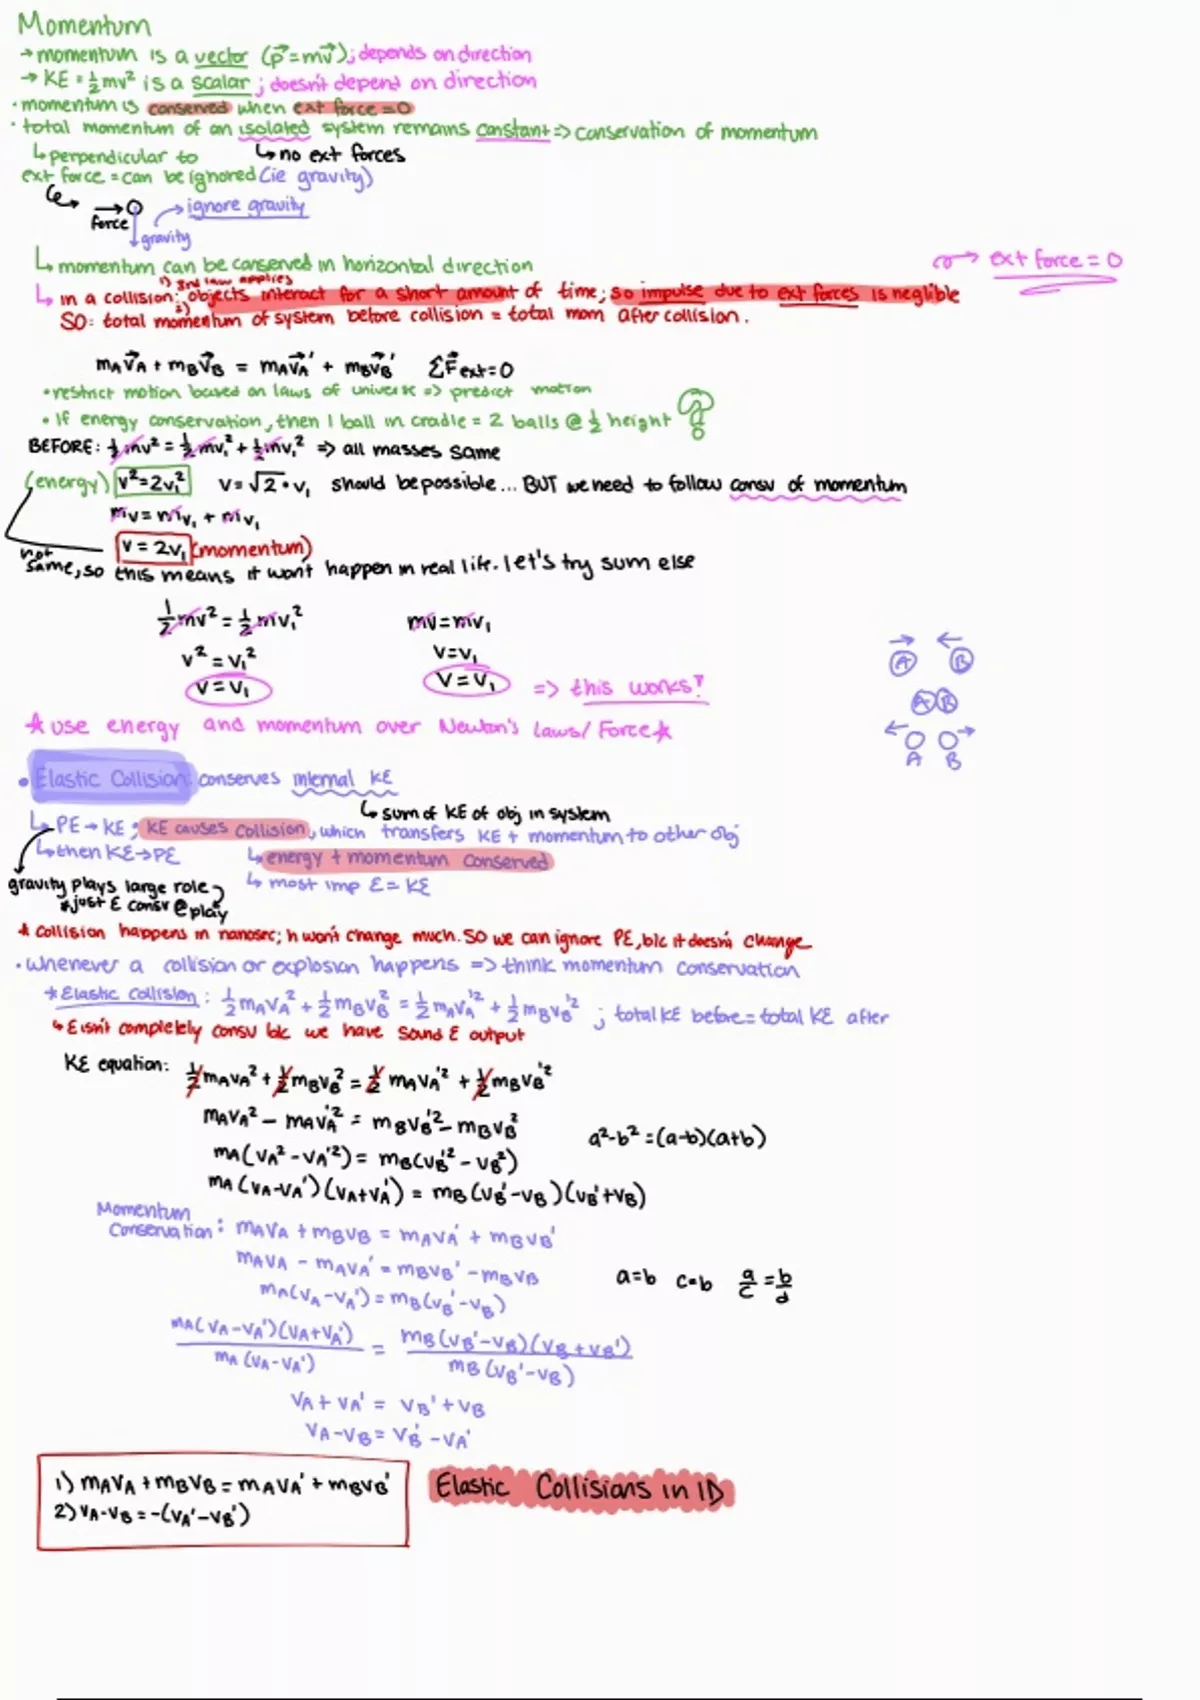 Momentum
→ momentum is a vector (p⃗=mv⃗); depends on direction
→ KE = ½mv² is a scalar ; doesn't depend on direction
• momentum is conserved when ext force = 0
• total momentum of an isolated system remains constant => conservation of momentum
↳ perpendicular to ↳ no ext forces
ext force = can be ignored (ie gravity)
→ ignore gravity
force
gravity
↳ momentum can be conserved in horizontal direction
ext force = 0
1) 3rd law applies
↳ in a collision: objects interact for a short amount of time; so impulse due to ext forces is neglible
2)
SO: total momentum of system before collision = total mom after collision.
mAv⃗A + mBv⃗B = mAv⃗A' + mBv⃗B' ΣF⃗ext=0
• restrict motion based on laws of universe => predict motion
• If energy conservation, then 1 ball in cradle = 2 balls @ ½ height ?
BEFORE: ½mv² = ½mv₁² + ½mv₁² => all masses same
(energy) v²=2v₁² v=√2·v₁ should be possible... BUT we need to follow consv of momentum
mv = mv₁ + mv₁
v = 2v₁ (momentum)
not same, so this means it won't happen in real life. let's try sum else
½mv² = ½mv₁² mv=mv₁
v² = v₁² v=v₁
v=v₁ v=v₁ => this works!
A B
AB
A B
★ use energy and momentum over Newton's Laws/Force ★
• Elastic Collision: conserves internal KE
↳ sum of KE of obj in system
↳ PE→KE; KE causes collision, which transfers KE + momentum to other obj
↳ then KE→PE ↳ energy + momentum conserved
gravity plays large role ↳ most imp E = KE
*just E consv @ play
* collision happens in nanosec; h won't change much. SO we can ignore PE, b/c it doesn't change
• whenever a collision or explosion happens => think momentum conservation
* Elastic Collision: ½mAvA² + ½mBvB² = ½mAvA'² + ½mBvB'² ; total KE before = total KE after
↳ E isn't completely consv b/c we have sound E output
KE equation: ½mAvA² + ½mBvB² = ½mAvA'² + ½mBvB'²
mAvA² - mAvA'² = mBvB'² - mBvB²
a²-b² = (a-b)(a+b)
mA(vA² - vA'²) = mB(vB'² - vB²)
mA(vA-vA')(vA+vA') = mB(vB'-vB)(vB'+vB)
Momentum
Conservation: mAvA + mBvB = mAvA' + mBvB'
mAvA - mAvA' = mBvB' - mBvB
a=b c=b a/c = b/d
mA(vA-vA') = mB(vB'-vB)
mA(vA-vA')(vA+vA') / mA(vA-vA') = mB(vB'-vB)(vB+vB') / mB(vB'-vB)
vA + vA' = vB' + vB
vA-vB = vB' - vA'
1) mAvA + mBvB = mAvA' + mBvB'
2) vA-vB = -(vA'-vB')
Elastic Collisions in 1D